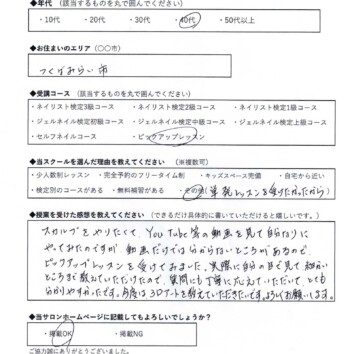 ◆年代 (該当するものを丸で囲んでください)
・10代 ・20代 ・30代 ・40代 ・50代以上
◆お住まいのエリア (○○市)
つくばみらい市
◆受講コース (該当するものを丸で囲んでください)
・ネイリスト検定3級コース ・ネイリスト検定2級コース ・ネイリスト検定1級コース
・ジェルネイル検定初級コース ・ジェルネイル検定中級コース ・ジェルネイル検定上級コース
・セルフネイルコース ・ピックアップレッスン
◆当スクールを選んだ理由を教えてください (※複数可)
・少人数制レッスン ・完全予約のフリータイム制 ・キッズスペース完備 ・自宅から近い
・検定別のコースがある ・無料補習がある ・その他(単発レッスンを受けたかったから)
◆授業を受けた感想を教えてください (できるだけ具体的に書いていただけると嬉しいです。)
スカルプをやりたくて、YouTube等の動画を見て自分なりに
やってみたのですが、動画だけでは分からないところがあるので、
ピックアップレッスンを受けてみました。実際に自分の目で見て細かい
ところまで教えていただけたので、質問にも丁寧に応えていただいて、とても
分かりやすかったです。今度は3Dアートを教えていただきたいです。よろしくお願いします。
◆当サロンホームページに記載してもよろしいでしょうか？
・掲載OK ・掲載NG
ご協力誠にありがとうございました。